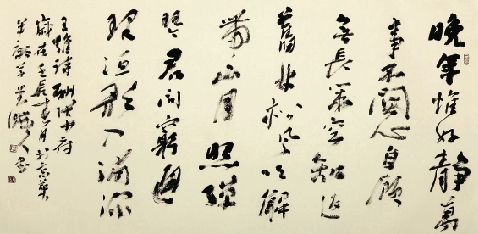 晚年惟好靜萬
事不關心自顧
無長策空知返
舊林松風吹解
帶山月照彈
琴君問窮通
理漁歌入浦深
王維詩酬張少府